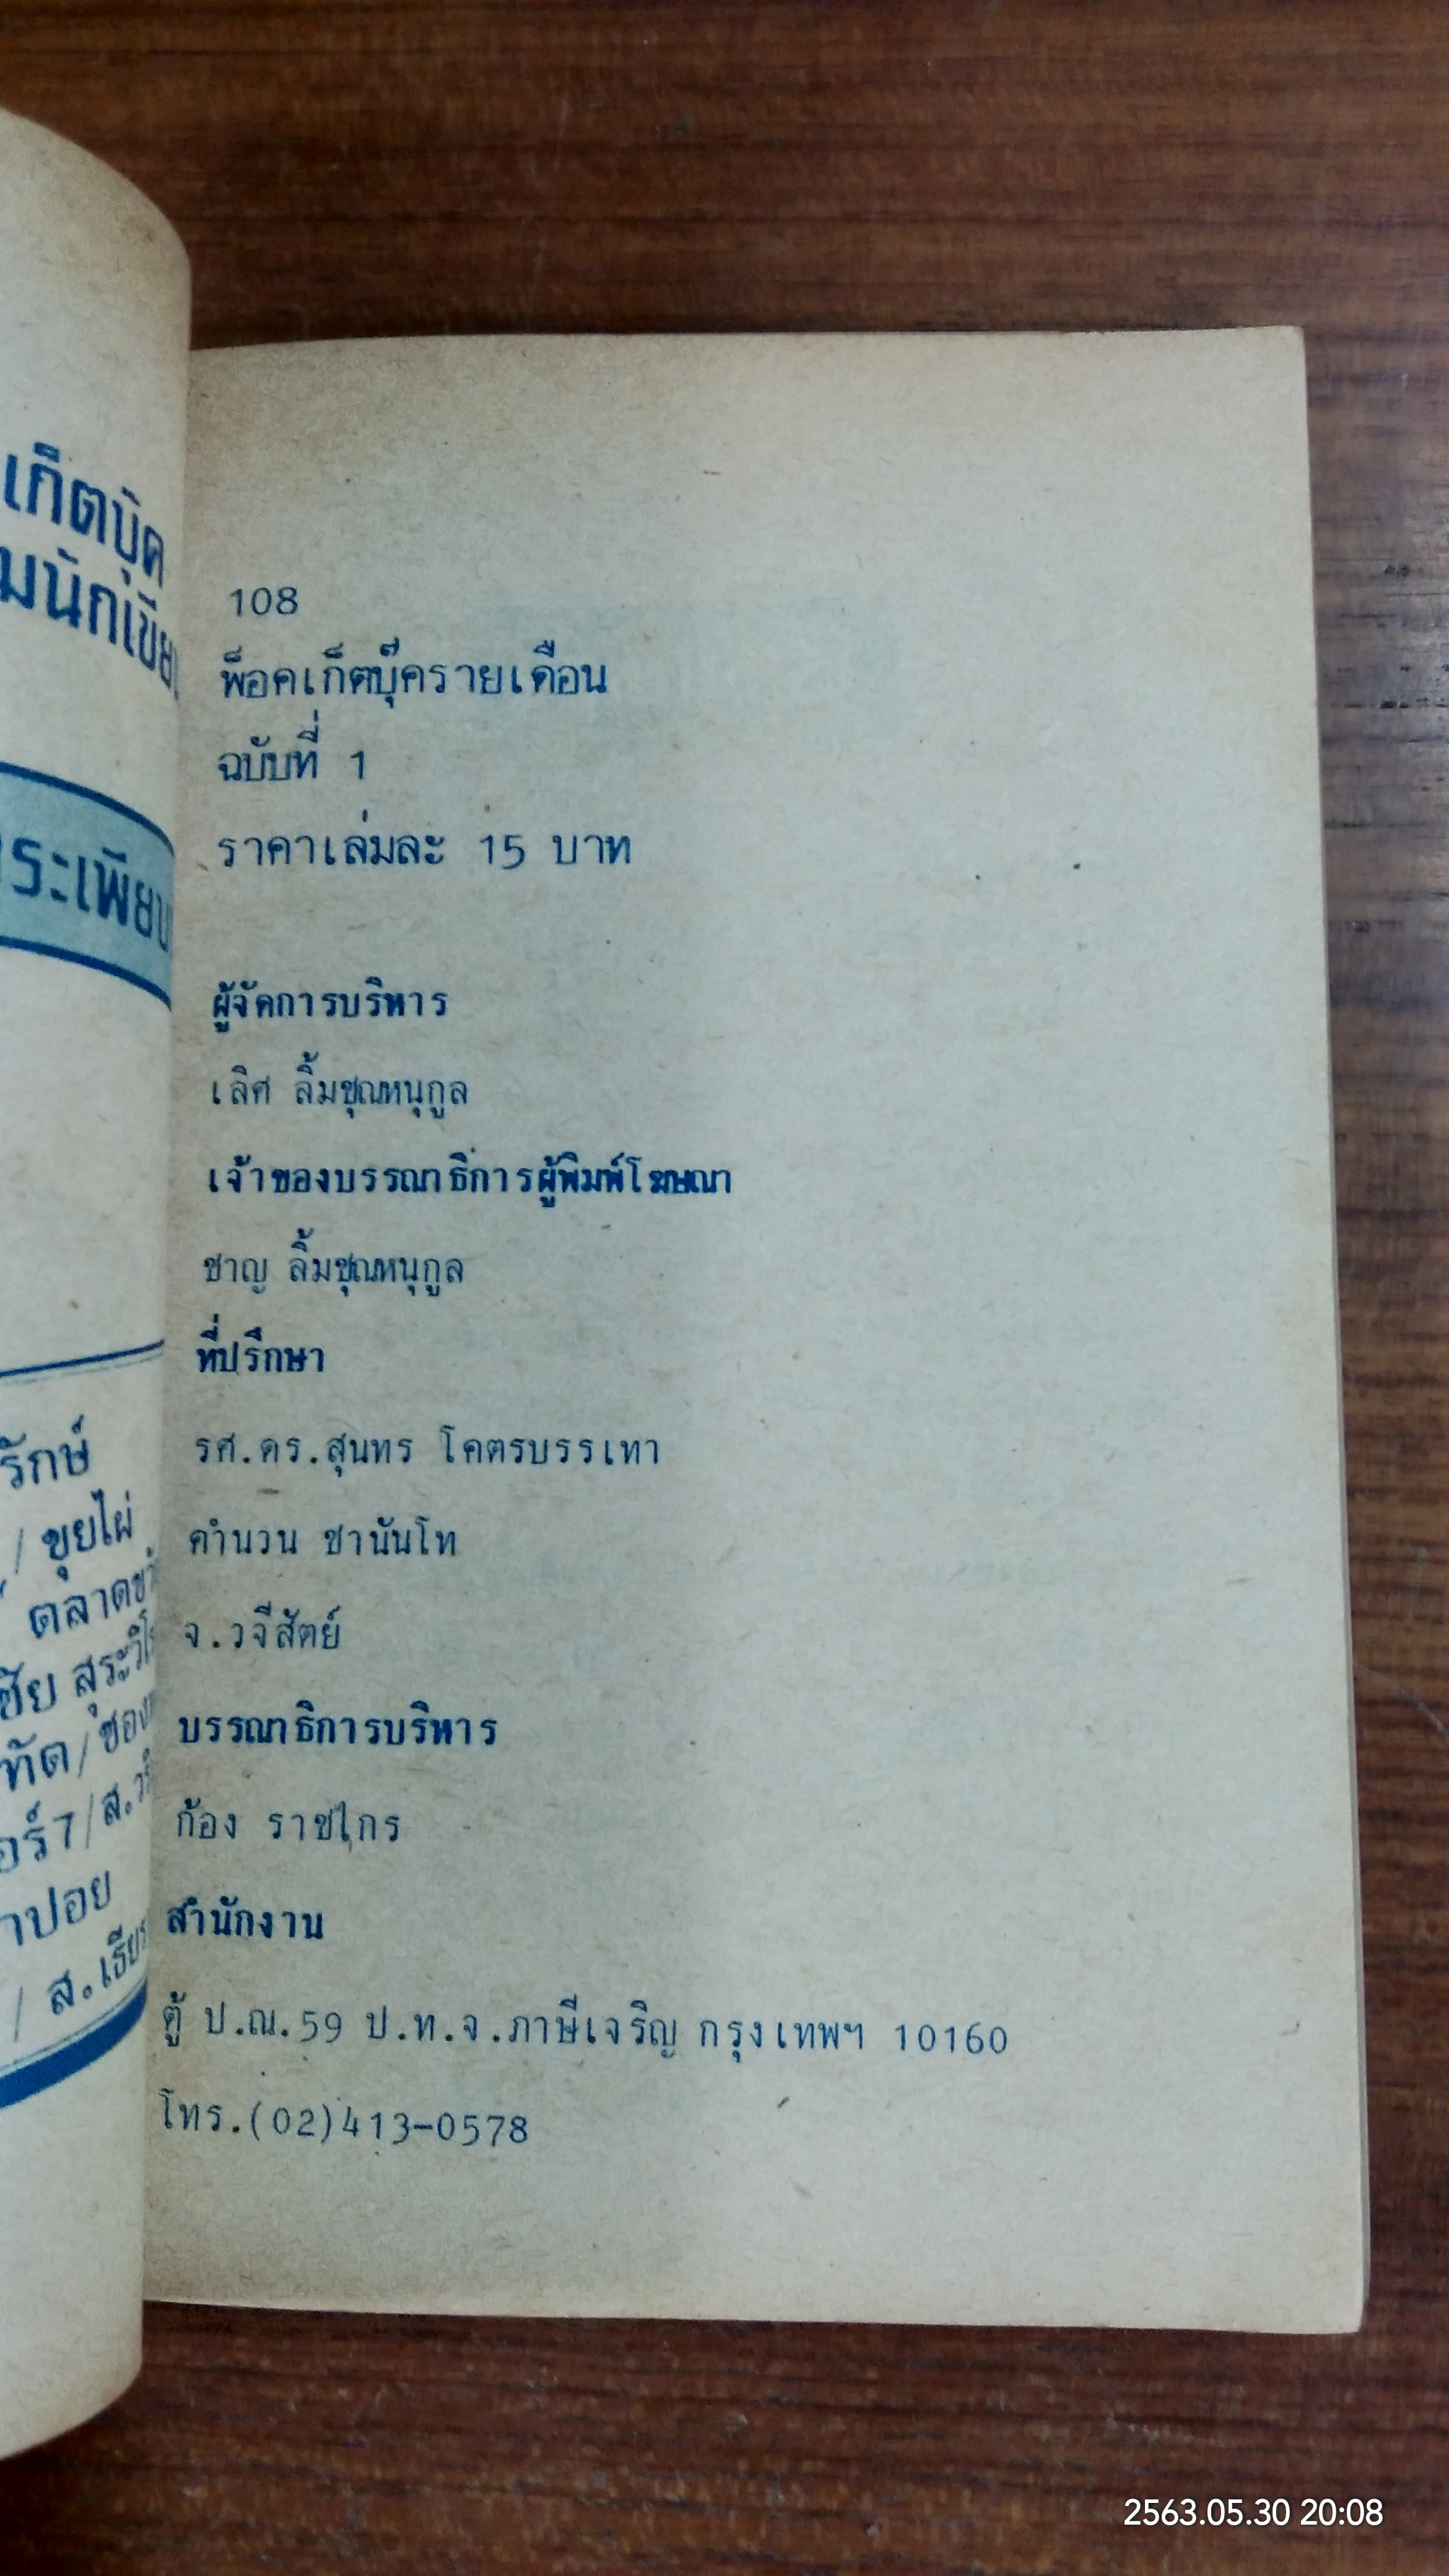 เก็ตบุ๊ค
108
พ็อคเก็ตบุ๊ครายเดือน
ฉบับที่ 1
ราคาเล่มละ 15 บาท
ผู้จัดการบริหาร
เลิศ ลิ้มชุณหนุกูล
เจ้าของบรรณาธิการผู้พิมพ์โฆษณา
ชาญ ลิ้มชุณหนุกูล
ที่ปรึกษา
รศ.ดร.สุนทร โคตรบรรเทา
คำนวน ชานันโท
จ.วจีสัตย์
บรรณาธิการบริหาร
ก้อง ราชไกร
สำนักงาน
ตู้ ป.ณ.59 ป.ท.จ.ภาษีเจริญ กรุงเทพฯ 10160
โทร.(02)413-0578
รักษ์
/ ขุยไผ่
2563.05.30 20:08